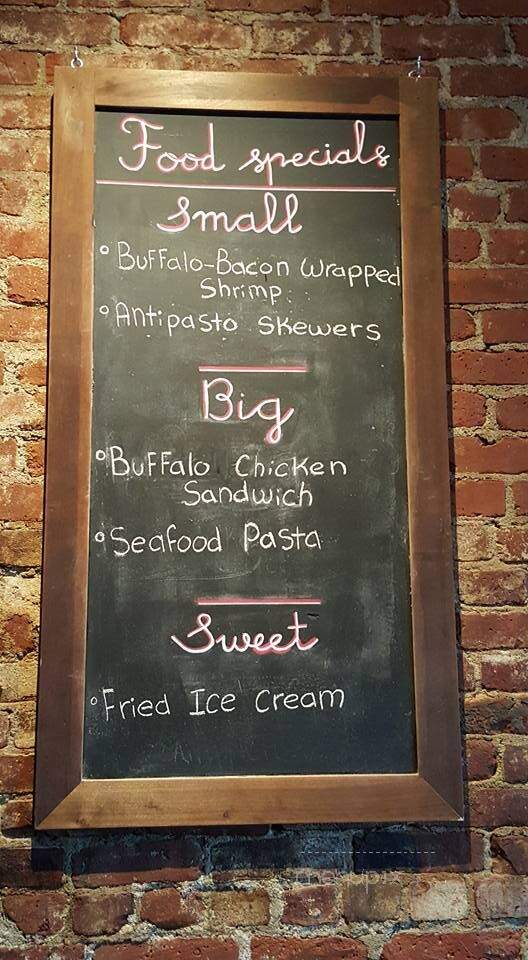 Food specials
Small
° Buffalo-Bacon Wrapped
Shrimp
° Antipasto Skewers
Big
° Buffalo Chicken
Sandwich
° Seafood Pasta
Sweet
° Fried Ice Cream